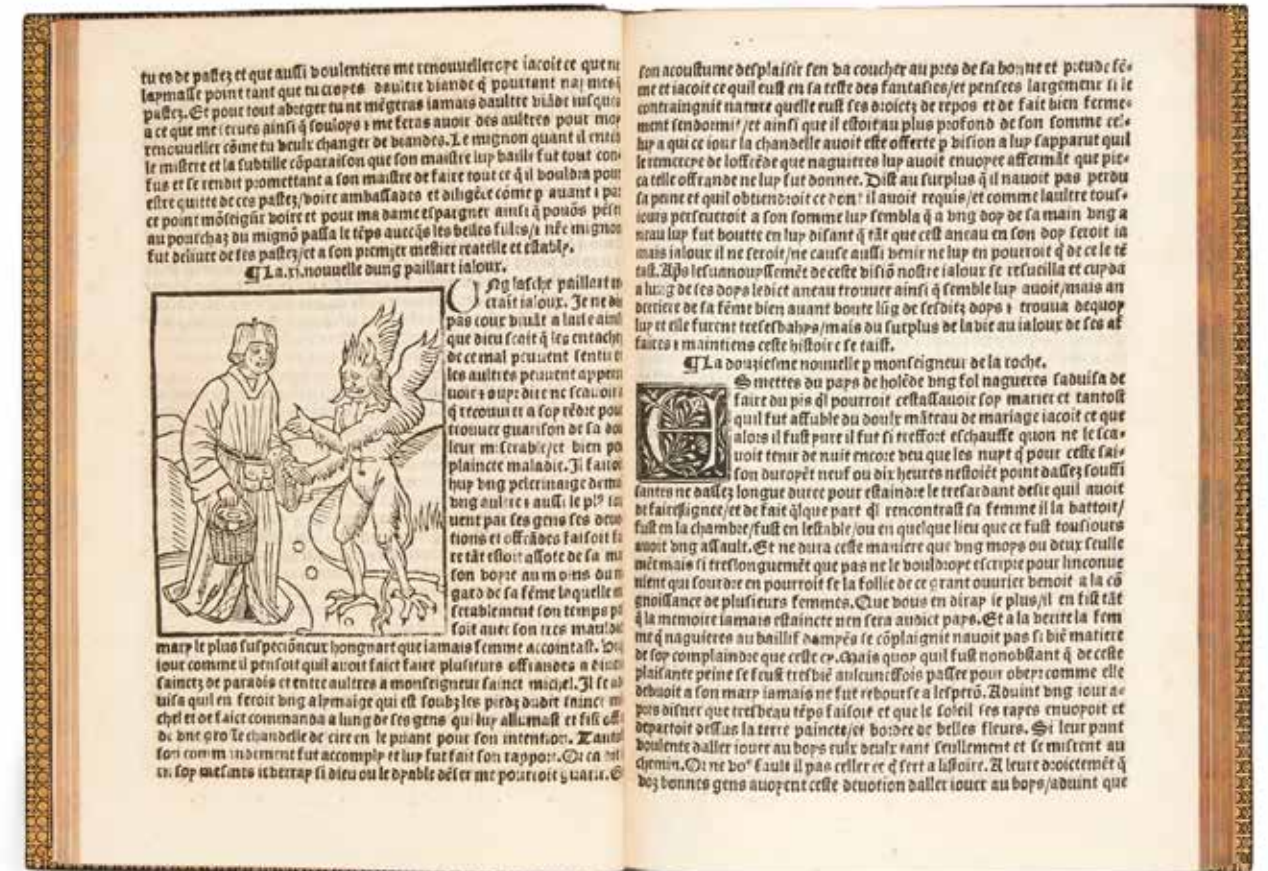 tu es de pastez et que aussi voulentiers me renouvelleroye iacoit ce que ne
laymasse point tant que tu croyes daultre viande q̃ pourtant nay mesq̃
pastez. Et pour tout abreger tu ne mẽgeras iamais daultre viãde iusques
a ce que me serues ainsi q̃ souloys ⁊ me feras auoir des aultres pour moy
renouueller cõme tu veulx changer de viandes. Le mignon quant il entẽd
le mistere et la subtille cõparaison que son maistre luy baille fut tout con
fus et se rendit promettant a son maistre de faire tout ce q̃ il vouldra pour
estre quitte de ces pastez/voire ambassades et diligẽce come p auant ⁊ par
ce point mõseigñr voire et pour ma dame espargner ainsi q̃ pouõs
au pourchaz du mignõ passa le tẽps auecq̃s les belles filles/⁊ nr̃e mignon
fut deliure de ses pastez/et a son premier mestier reatelle et estably.
¶ La .xi. nouuelle dung paillart ialoux.
Ung lasche paillart
estait ialoux. Je ne dis
pas coux viuãt a laise ainsi
que dieu scait q̃ les entachez
de ce mal peuuent sentir et
les aultres peuuent apperc
uoir ⁊ ouyr dire ne scauoit a
q̃ recourir a soy rẽdre pour
trouuer guarison de sa dou
leur miserable/et bien peu
plaincte maladie. Il faisoit
huy vng pelerinaige demain
vng aultre ⁊ aussi le plꝰ sou
uent par ses gens ses deuo
tions et offrãdes faisoit fai
re tãt estoit assote de sa mai
son voyre au moins du re
gard de sa fẽme laquelle mi
serablement son temps pas
soit auec son tres mauldit
mary le plus suspeciõneux hongnart que iamais femme accointast. Ung
iour comme il pensoit quil auoit faict faire plusieurs offrandes a diuers
sainctz de paradis et entre aultres a monseigneur sainct michel. Il se ad
uisa quil en feroit vng a lymaige qui est soubz les piedz dudit sainct mi
chel et de faict commanda a lung de ses gens qui luy allumast et fist off
de vne grosse chandelle de cire en le priant pour son intention. Tantost
son commandement fut accomply et luy fut fait son rapport. Or ca
en soy mesmes ie verray si dieu ou le dyable dẽfer me pourroit guarir. E
son acoustume desplaisir sen va coucher au pres de sa bonne et preude fẽ-
me et iacoit ce quil eust en sa teste des fantasies/et pensees largement si le
contraingnit nature quelle eust ses droictz de repos et de fait bien ferme-
ment sendormit/et ainsi que il estoit au plus profond de son somme cel-
luy a qui ce iour la chandelle auoit este offerte p vision a luy sapparut quil
le remercye de loffrẽde que nagueres luy auoit enuoyee affermãt que pie-
ca telle offrande ne luy fut donnee. Dist au surplus q̃ il nauoit pas perdu
sa peine et quil obtiendroit ce dont il auoit requis/et comme laultre tous-
iours perseueroit a son somme luy sembla q̃ a vng doy de sa main vng a
neau luy fut boutte en luy disant q̃ tãt que cest aneau en son doy seroit ia
mais ialoux il ne seroit/ne cause aussi venir ne luy en pourroit q̃ de ce le tẽ
tast. Apꝛes lesuanouyssemẽt de ceste visiõ nostre ialoux se resueilla et cuyda
a lung de ses doys ledict aneau trouuer ainsi q̃ semble luy auoit/mais au
derriere de sa fẽme bien auant boute lũg de sesditz doys ⁊ trouua dequoy
luy et elle furent tresesbahys/mais du surplus de la vie au ialoux de ses af
faires ⁊ maintiens ceste histoire se taist.
¶ La douziesme nouuelle p monseigneur de la roche.
ES mettes du pays de holẽde vng fol nagueres saduisa de
faire du pis q̃l pourroit cestassauoir soy marier et tantost
quil fut affuble du doulx mãteau de mariage iacoit ce que
alors il fust yure il fut si treffort eschauffe quon ne le sca-
uoit tenir de nuit encore veu que les nuyt q̃ pour ceste sai-
son duroyẽt neuf ou dix heures nestoiẽt point dassez souffi
santes ne dassez longue duree pour estaindre le tresardant desir quil auoit
de faire lignee/et de fait q̃lque part q̃l rencontrast sa femme il la battoit/
fust en la chambre/fust en lestable/ou en quelque lieu que ce fust tousiours
auoit vng assault. Et ne dura ceste maniere que vng moys ou deux seulle
mẽt mais si treslonguemẽt que pas ne le vouldroye escripre pour linconue
nient qui sourdre en pourroit se la follie de ce grant ouurier benoit a la cõ
gnoissance de plusieurs femmes. Que vous en diray ie plus/il en fist tãt
q̃ la memoire iamais estaincte nen sera audict pays. Et a la verite la fem
me q̃ naguieres au baillif dampẽs se cõplaignit nauoit pas si biẽ matiere
de soy complaindre que ceste cy. Mais quoy quil fust nonobstant q̃ de ceste
plaisante peine se feust tresbiẽ aulcuneffois passee pour obeyr comme elle
debuoit a son mary iamais ne fut rebourse a lesperõ. Aduint vng iour a-
pres disner que tresbeau tẽps faisoit et que le soleil ses rayes enuoyoit et
departoit dessus la terre paincte/et bordee de belles fleurs. Si leur print
voulente daller iouer au boys eulx deulx tant seullement et se mistrent au
chemin. Or ne voꝰ fault il pas celler ce q̃ sert a listoire. A leure droictemẽt q̃
noz bonnes gens auoyent ceste deuotion daller iouer au boys/aduint que